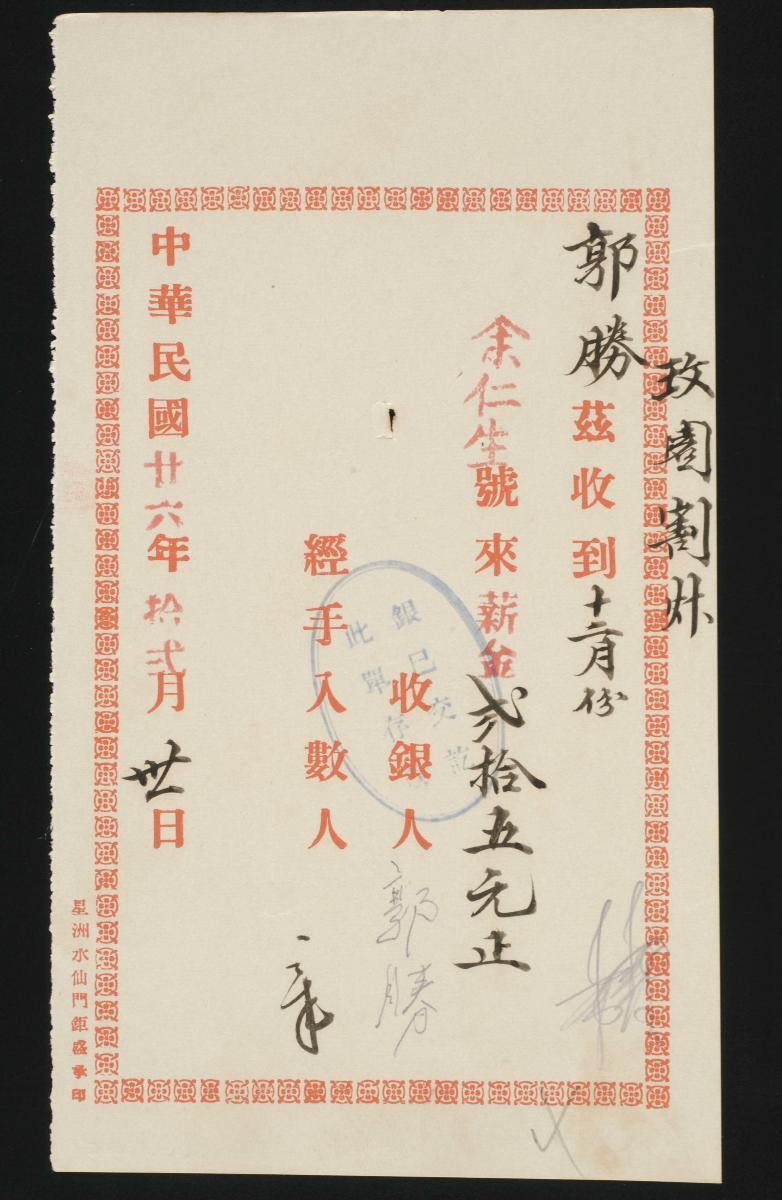 郭勝茲收到十二月份
余仁生號來薪金弍拾五元正
收銀人郭勝
經手入數人
中華民國廿六年拾弍月卅日
銀已交訖
此單存
星洲水仙門鉅盛承印